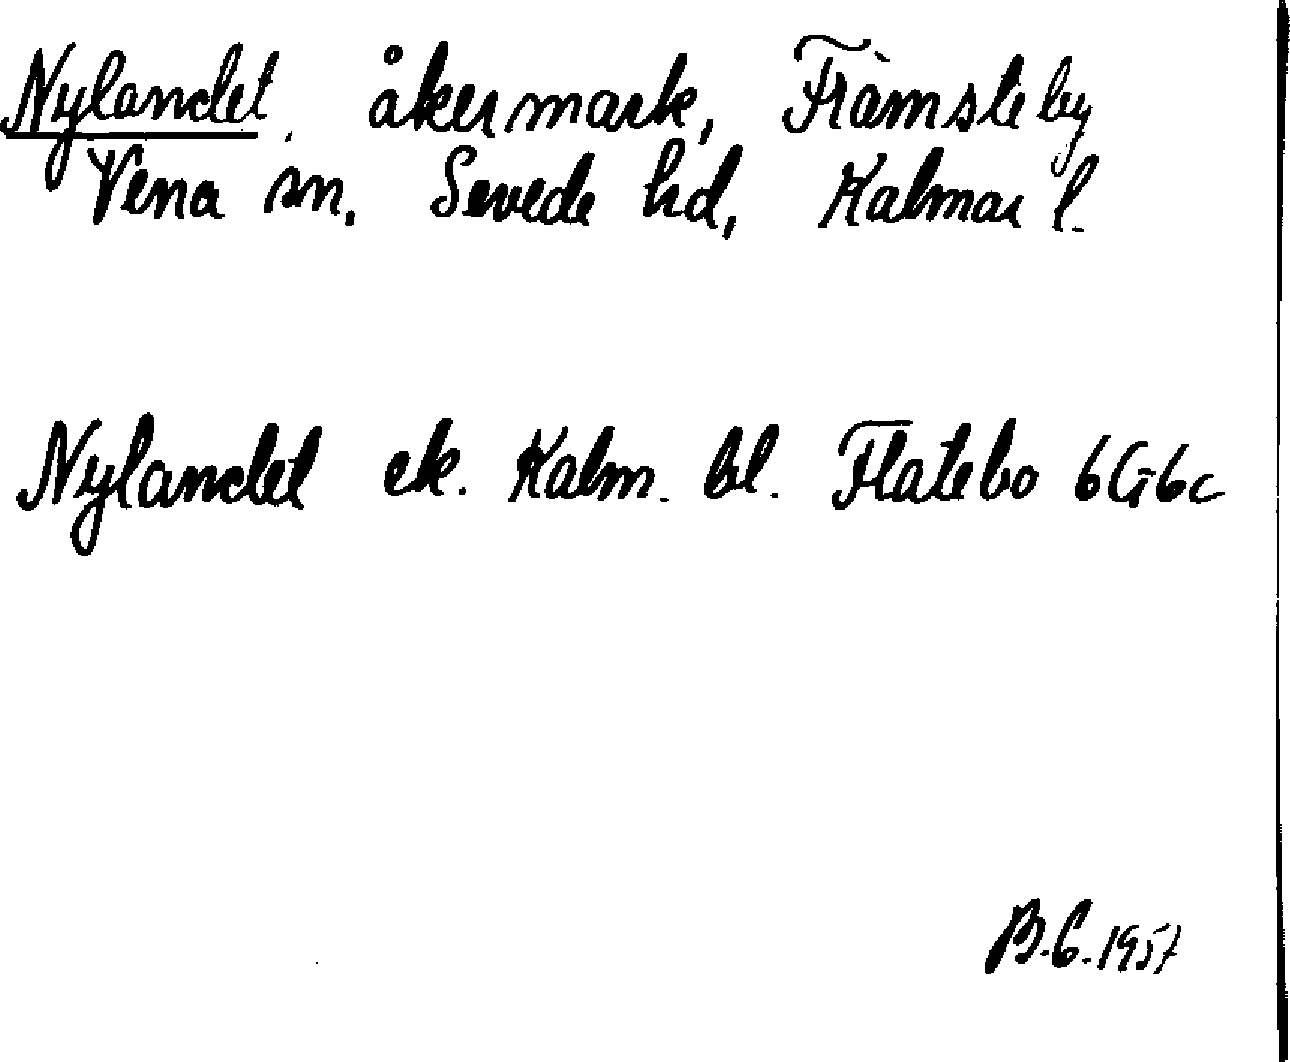 Nylandet, åkermark, Främsteby
Vena sn. Sevede hd, Kalmar l.
Nylandet ek. Kalm. bl. Flatebo 6G6c
B.G. 1957